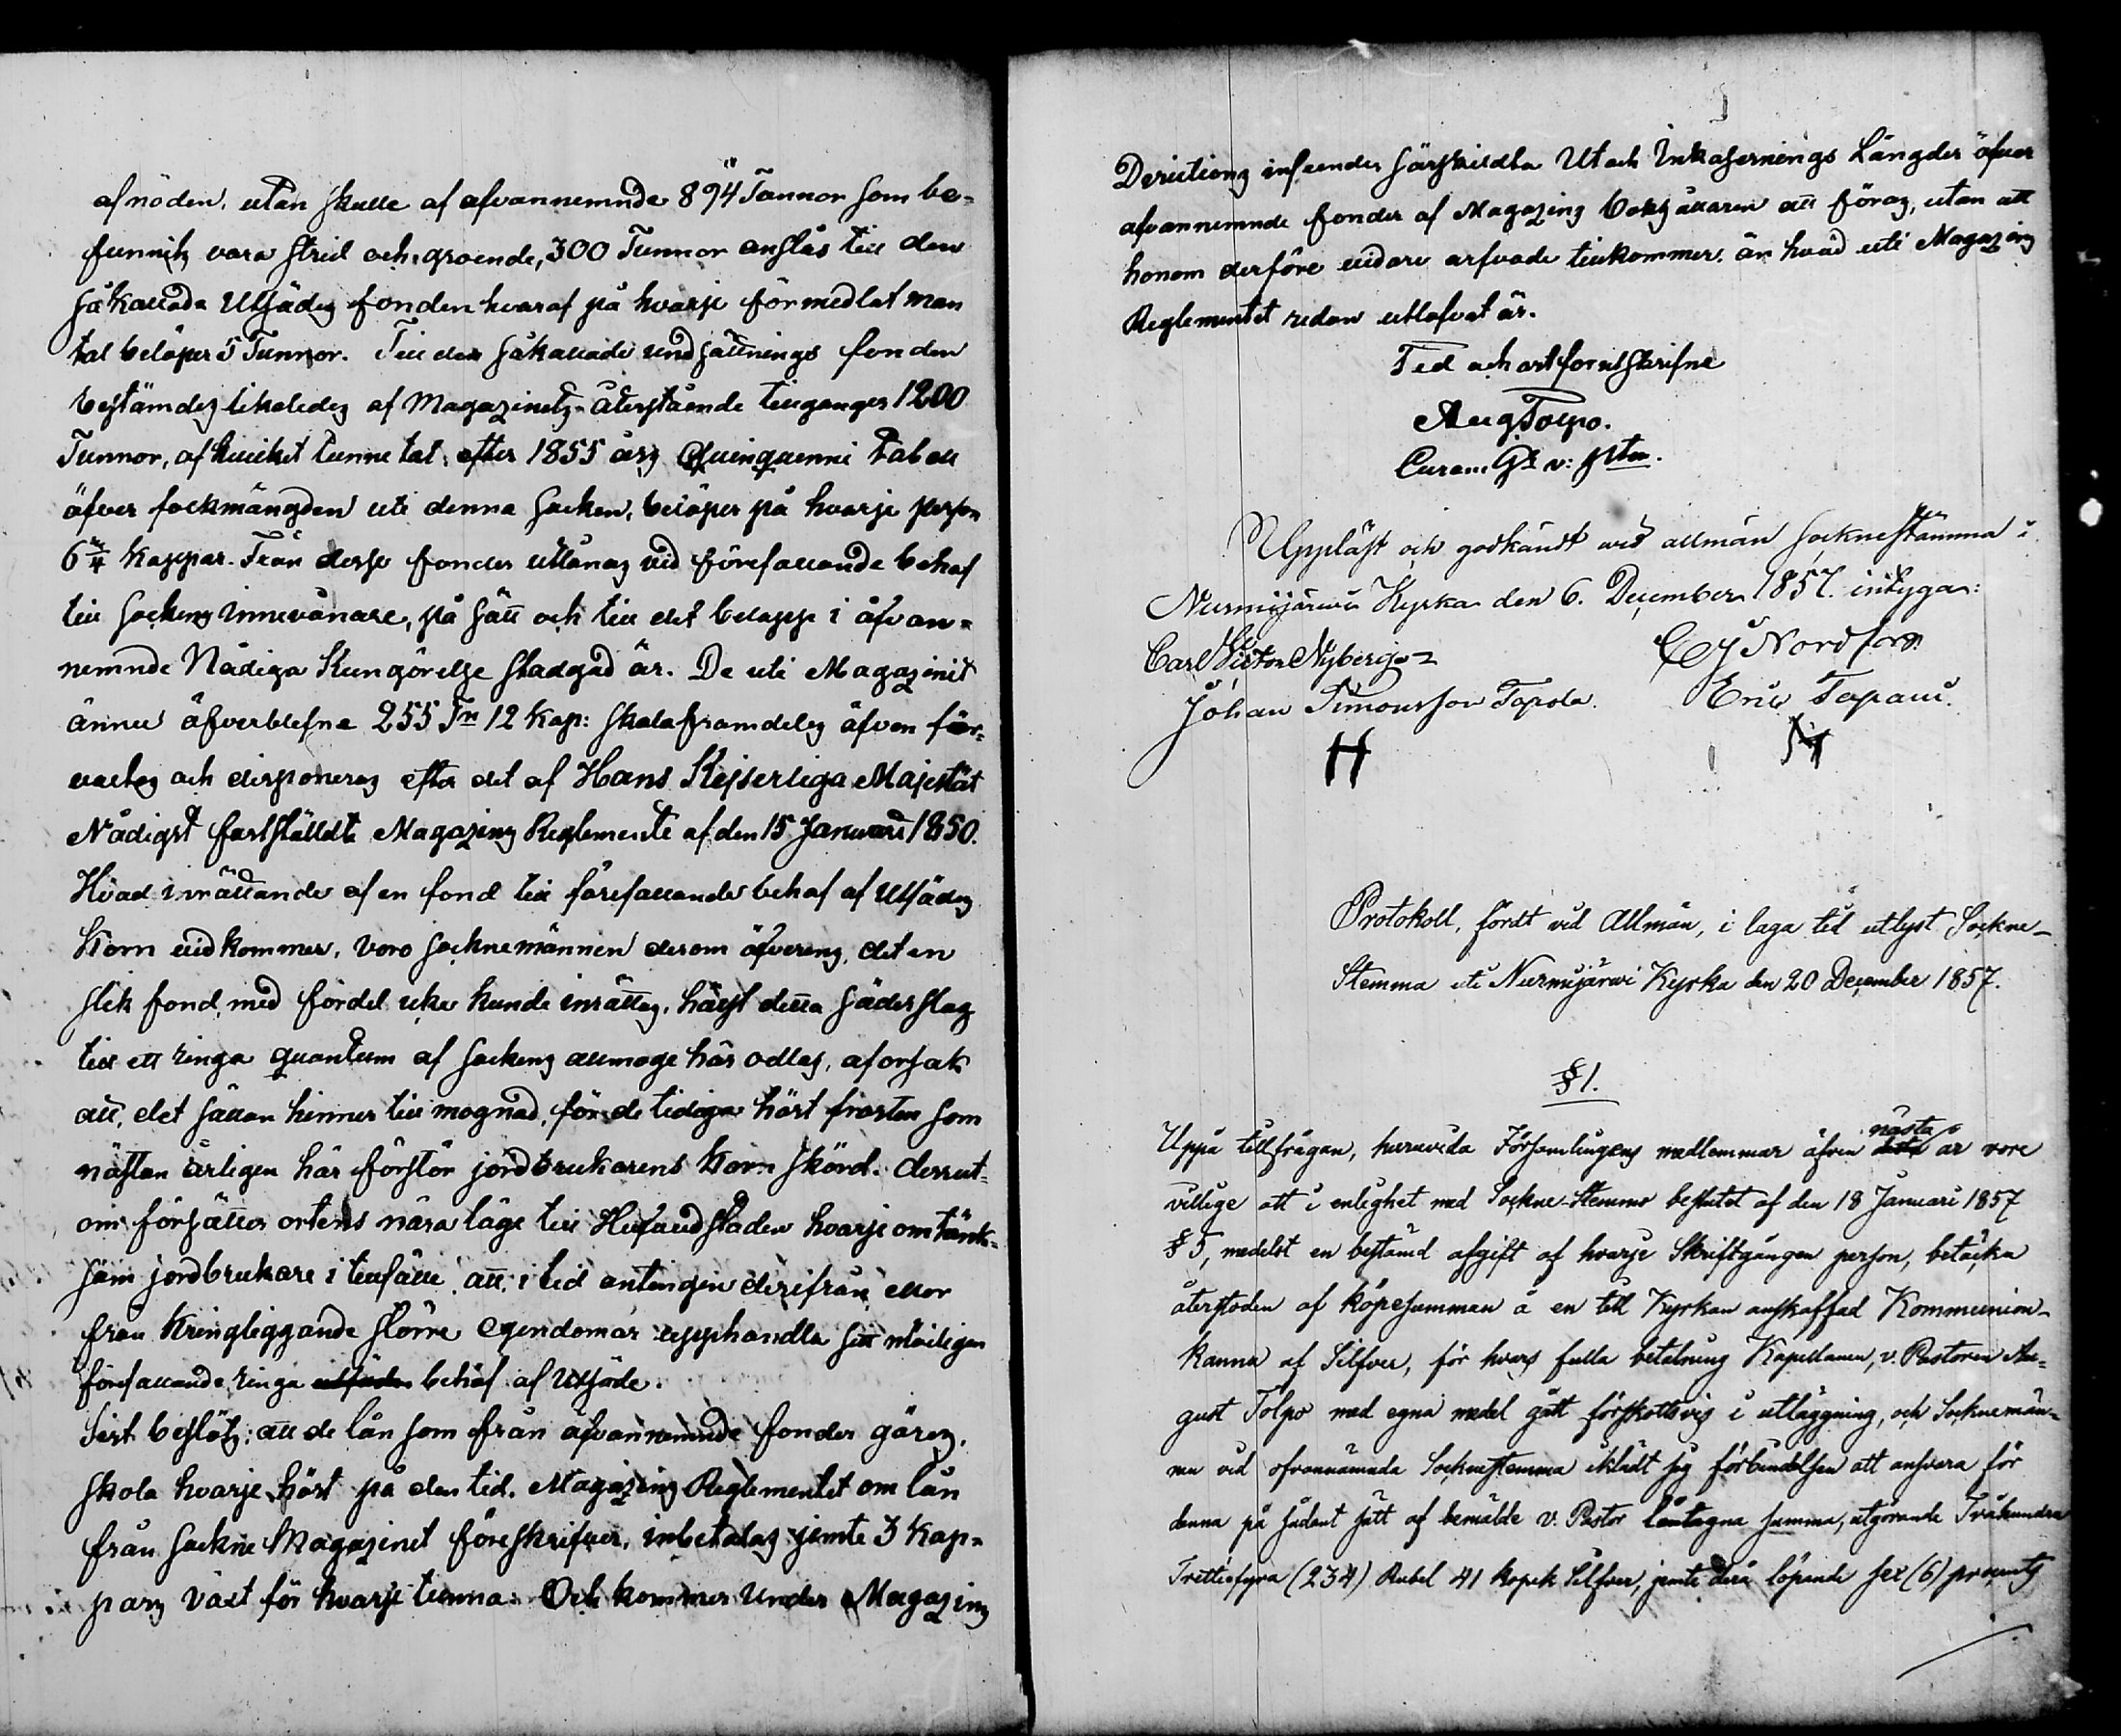 af nöden, utan skulle af afvannemnde 894 Tunnor som be-
funnits vara strid och groende, 300 Tunnor anslås till den
såkallade Utsädes fonden hvaraf på hvarje förmedlat man
tal belöper 5 Tunnor. Till den såkallade undsättnings fonden
bestämdes likaledes af Magazinets återstående tillgångar 1200
Tunnor, af hvilket tunnetal, efter 1855 års Quinquenni Tabell
öfver folkmängden uti denna Socken, belöper på hvarje person
6 kappar. Från desse fonder utlånas vid förefallande behof
till Sockens innevånare, på sätt och till det belopp i åfvan-
nemnde Nådiga Kungörelse stadgad är. De uti Magazinet
ännu äfverblefne 255 Tn 12 Kap: skola framdeles äfven för-
valtas och disponeras efter det af Hans Kejserliga Majestät
Nådigst fastställdte Magazins Reglemente af den 15 Januari 1850.
Hvad inrättande af en fond till förefallande behof af Utsädes
Korn vidkommer, voro Socknemännen derom äfverens, det en
slik fond med fördel icke kunde inrättas, hälst detta sädesslag
till ett ringa quantum af Sockens allmoge här odlas, af orsak
att, det sällan hinner till mognad, för de tidiga höst frosten som
nästan årligen här förstör jordbrukarens Korn skörd. Derut-
om försätter ortens nära läge till Hufvudstaden hvarje omtänk-
sam jordbrukare i tillfälle att, i tid antingen derifrån eller
från Kringliggande större egendomar upphandla sitt möiligen
förefallande ringa behof af Utsäde.
Sist beslöts; att de lån som från åfvannemnde fonder göres,
skola hvarje höst på den tid, Magazins Reglementet om lån
från Sockne Magazinet föreskrifver, inbetalas jemte 3 Kap-
pars växt för hvarje tunna. Och kommer under Magazins
Directions inseende särskildta Ut och Inkasernings Längder äfver
afvannemnde fonder af Magazins bokhållaren att föras, utan att
honom derföre vidare arfvode tillkommer, än hvad uti Magazins
Reglementet redan utlofvat är.
Tid och ort forutskrifne
Aug Tolpo.
Curam G:s v: pstm.
Uppläst och godkändt wid allmän Socknestämma i
Nurmijärwi Kyrka den 6. December 1857. intyga:
Carl Victor Nyberg
C J Nordfors
Johan Simonsson Tapola.
Eric Tapani.
H
Protokoll, fördt vid Allmän, i laga tid utlyst Sockne-
Stemma uti Nurmijärwi Kyrka den 20 December 1857.
§ 1.
Uppå tillfrågan, huruvida Församlingens medlemmar äfven nästa år vore
villige att i enlighet med Sockne-Stemmo beslutet af den 18 Januari 1857
§ 5, medelst en bestämd afgift af hvarje Skriftgången person, betäcka
återstoden af köpesumman å en till Kyrkan anskaffad Kommunion-
kanna af Silfver, för hvars fulla betalning Kapellanen, v. Pastoren Au-
gust Tolpo med egna medel gått förskottsvis i utläggning, och Socknemän-
nen vid ofvannämnda Socknestemma iklädt sig förbindelsen att ansvara för
denna på sådant sätt af bemälde v. Pastor låntagna summa, utgörande Tvåhundra
Trettiofyra (234) Rubel 41 kopek Silfver, jemte derå löpande sex (6) procents